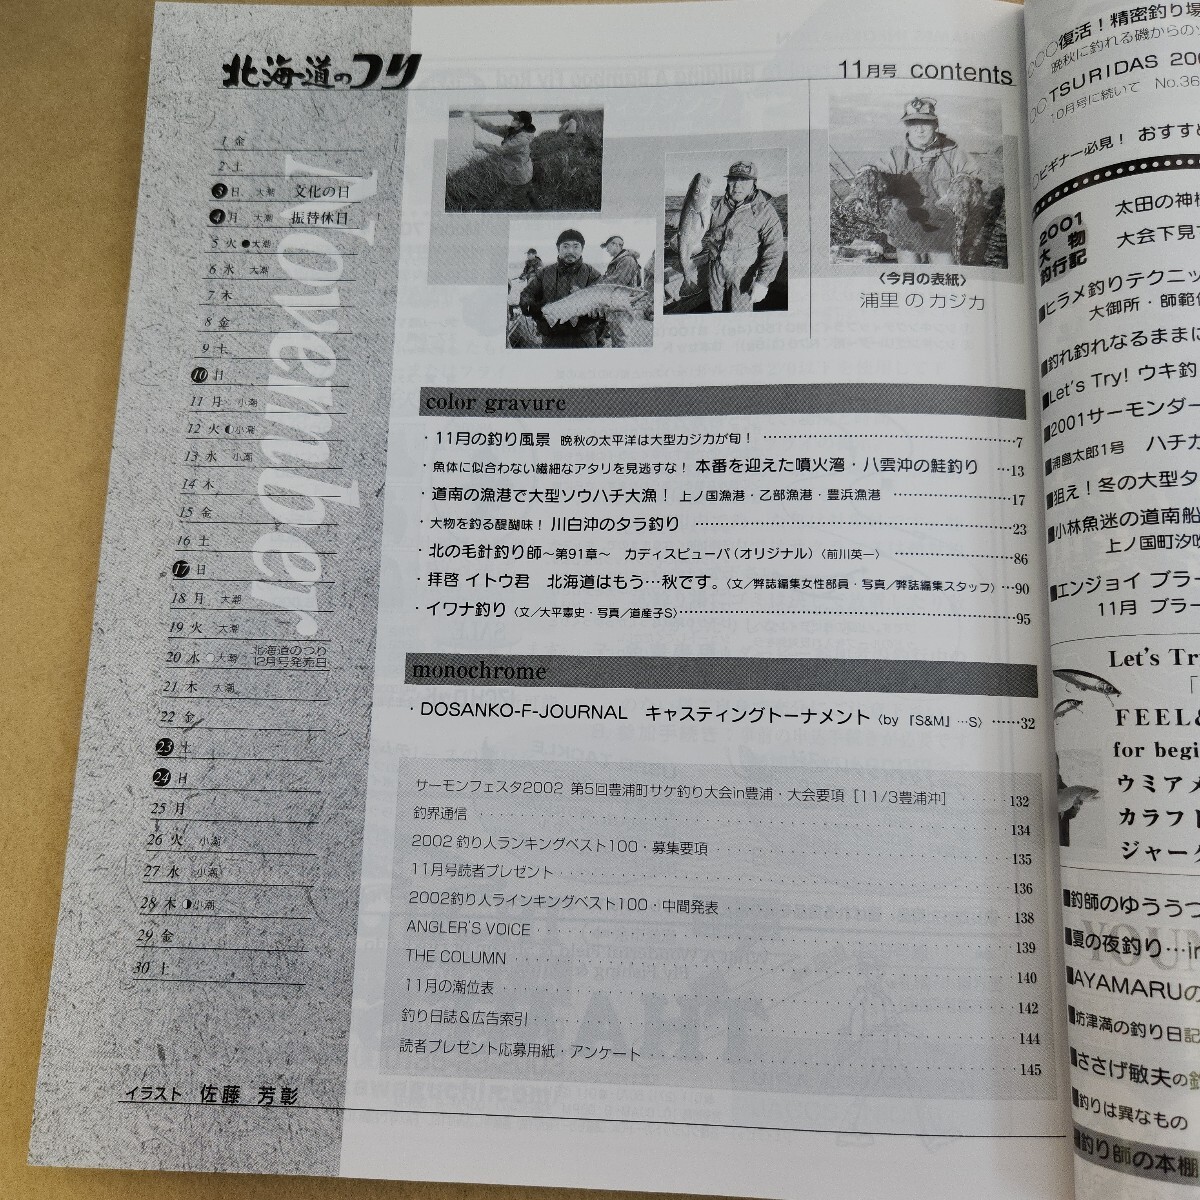 北海道のつり
11月号 contents
1 金
2 土
3 日 大潮 文化の日
4 月 大潮 振替休日
5 火 ●大潮
6 水 大潮
7 木
8 金
9 土
10 日
11 月 小潮
12 火 ◐小潮
13 水 小潮
14 木
15 金
16 土
17 日
18 月 大潮
19 火 大潮
20 水 ○大潮 北海道のつり
12月号発売日
21 木 大潮
22 金
23 土
24 日
25 月
26 火 小潮
27 水 小潮
28 木 ◑小潮
29 金
30 土
November
イラスト 佐藤 芳彰
〈今月の表紙〉
浦里のカジカ
color gravure
・11月の釣り風景 晩秋の太平洋は大型カジカが旬！ …7
・魚体に似合わない繊細なアタリを見逃すな！ 本番を迎えた噴火湾・八雲沖の鮭釣り …13
・道南の漁港で大型ソウハチ大漁！ 上ノ国漁港・乙部漁港・豊浜漁港 …17
・大物を釣る醍醐味！ 川白沖のタラ釣り …23
・北の毛針釣り師～第91章～ カディスピューパ（オリジナル）〈前川英一〉 …86
・拝啓 イトウ君 北海道はもう…秋です。〈文／弊誌編集女性部員・写真／弊誌編集スタッフ〉 …90
・イワナ釣り〈文／大平憲史・写真／道産子S〉 …95
monochrome
・DOSANKO-F-JOURNAL キャスティングトーナメント〈by 『S&M』…S〉 …32
サーモンフェスタ2002 第5回豊浦町サケ釣り大会in豊浦・大会要項［11/3豊浦沖］ 132
釣界通信 134
2002釣り人ランキングベスト100・募集要項 135
11月号読者プレゼント 136
2002釣り人ラインキングベスト100・中間発表 138
ANGLER'S VOICE 139
THE COLUMN 140
11月の潮位表 142
釣り日誌＆広告索引 144
読者プレゼント応募用紙・アンケート 145
○復活！精密釣り場
晩秋に釣れる磯からの
○TSURIDAS 200
10月号に続いて No.36
○ビギナー必見！ おすすめ
2001
大物
釣行記
太田の神様
大会下見で
■ヒラメ釣りテクニッ
大御所・師範
■釣れ釣れなるままに
■Let's Try! ウキ釣
■2001サーモンダー
■浦島太郎1号 ハチガ
■狙え！冬の大型タ
■小林魚迷の道南船
上ノ国町汐吹
■エンジョイ ブラー
11月 ブラー
Let's Tr
FEEL&
for begi
ウミアメ
カラフト
ジャーク
YOUN
■釣師のゆううつ
■夏の夜釣り…in
■AYAMARUの
■坊津満の釣り日記
■ささげ敏夫の釣
■釣りは異なもの
■釣り師の本棚